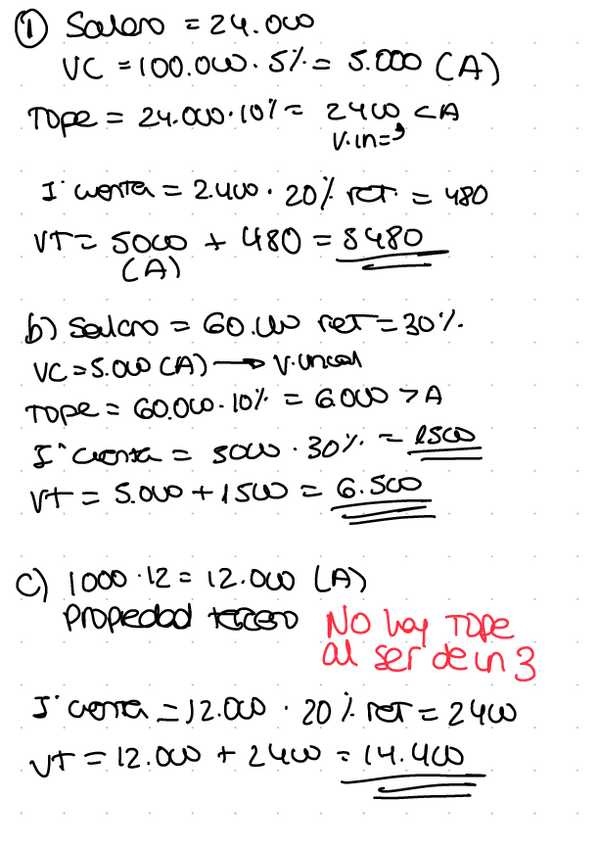 ① Salario = 24.000
VC = 100.000 · 5% = 5.000 (A)
TOPE = 24.000 · 10% = 2400 < A
I· cuenta = 2.400 · 20% ret. = 480
VT = 5000 + 480 = 5480
(A)
b) Salario = 60.000 ret = 30%.
VC = 5.000 (A) → V.
TOPE = 60.000 · 10% = 6.000 > A
I· cuenta = 5000 · 30% = 1500
VT = 5.000 + 1500 = 6.500
c) 1000 · 12 = 12.000 (A)
Propiedad tercero
NO hay TOPE
al ser de un 3
I· cuenta = 12.000 · 20% ret = 2400
VT = 12.000 + 2400 = 14.400